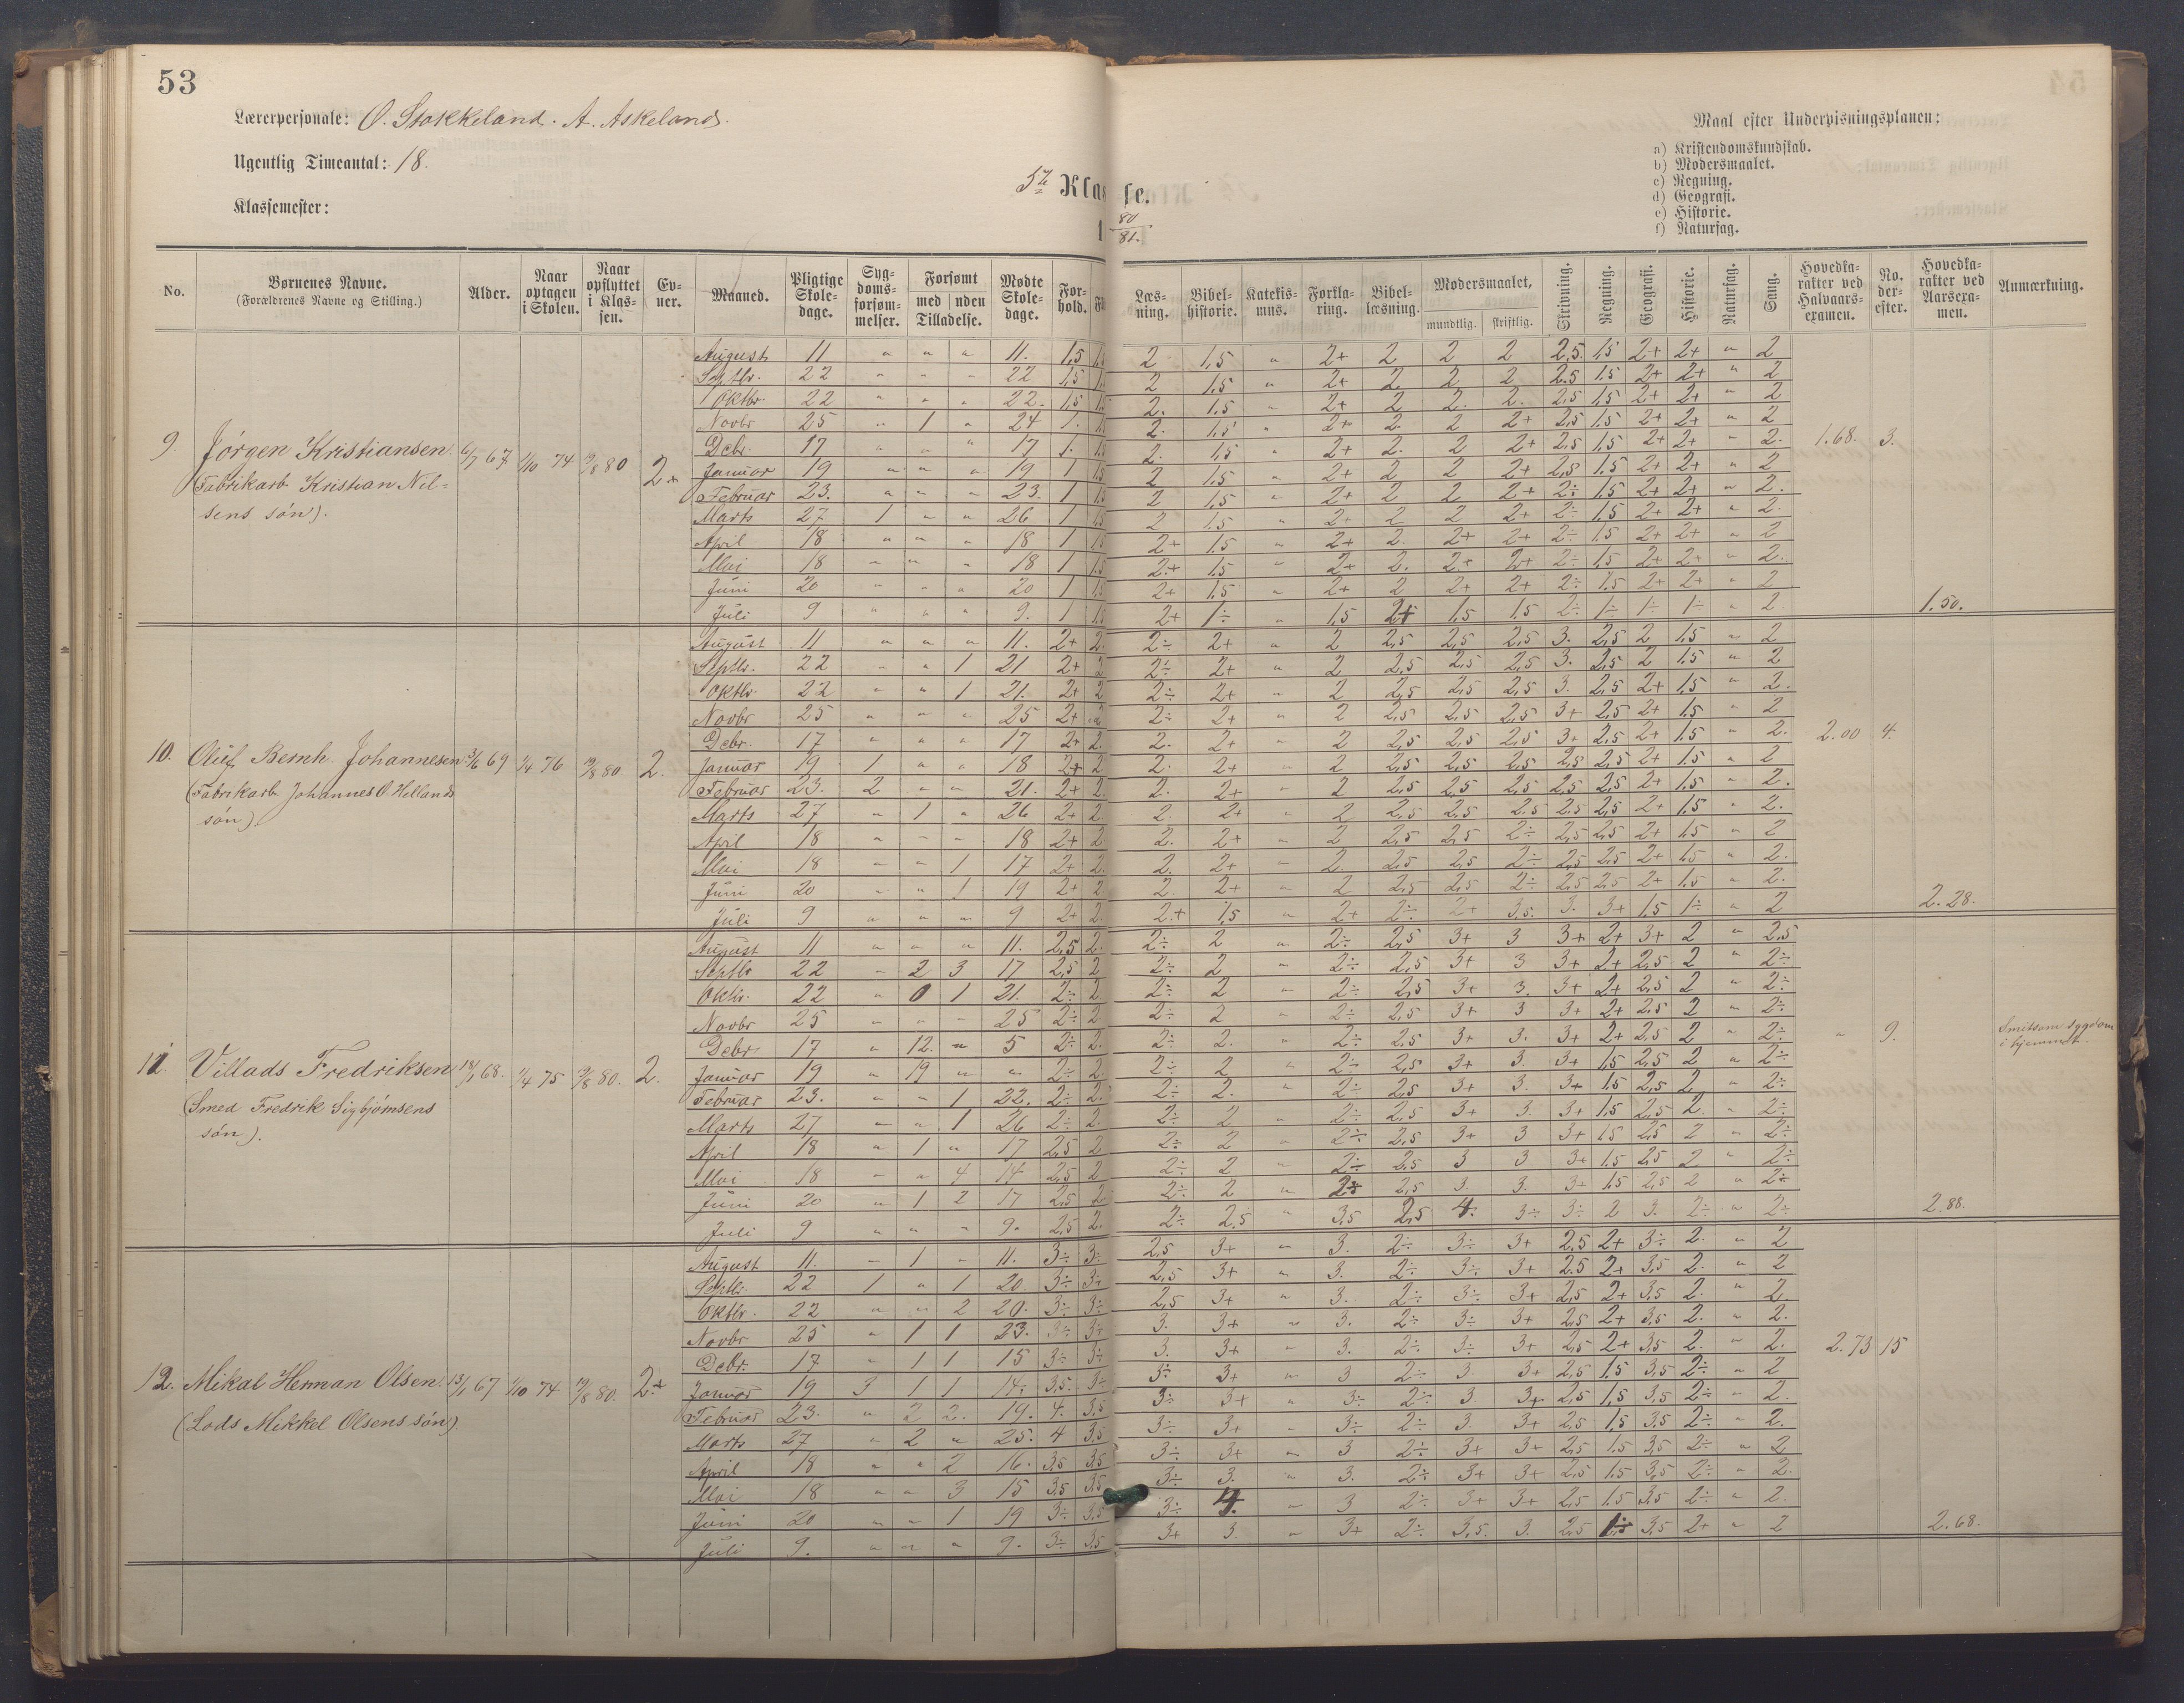 53
Lærerpersonale: O. Stokkeland. A. Askeland.
Ugentlig Timeantal: 18.
Klassemester:
5te Klas se.
1 80/81.
Maal efter Undervisningsplanen:
a) Kristendomskundskab.
b) Modersmaalet.
c) Regning.
d) Geografi.
e) Historie.
f) Naturfag.
No. | Børnenes Navne. (Forældrenes Navne og Stilling.) | Alder. | Naar optagen i Skolen. | Naar opflyttet i Klassen. | Evner. | Maaned. | Pligtige Skoledage. | Sygdomsforsømmelser. | Forsømt med uden Tilladelse. | Mødte Skoledage. | Forhold. | Fl | Læsning. | Bibelhistorie. | Katekismus. | Forklaring. | Bibellæsning. | Modersmaalet, mundtlig. skriftlig. | Skrivning. | Regning. | Geografi. | Historie. | Naturfag. | Sang. | Hovedkarakter ved Halvaarsexamen. | No. derefter. | Hovedkarakter ved Aarsexamen. | Anmærkning.
9. Jørgen Kristiansen 6/7 67 1/10 74 19/8 80 2+
(Fabrikarb. Kristian Nilsens søn).
August 11 " " " 11. 1,5 1,5 2 1,5 " 2+ 2 2 2 2,5 1,5 2+ 2+ " 2
Septbr. 22 " " " 22 1,5 1,5 2 1,5 " 2+ 2 2 2 2,5 1,5 2+ 2+ " 2
Oktbr. 22 " " " 22. 1,5 1,5 2. 1,5 " 2+ 2 2. 2. 2,5 1,5 2+ 2+ " 2
Novbr 25 " 1 " 24 1. 1,5 2. 1,5 " 2+ 2 2 2+ 2,5 1,5 2+ 2+ " 2
Debr. 17 " " " 17 1. 1,5 2. 1,5 " 2+ 2. 2 2+ 2,5 1,5 2+ 2+ " 2. 1.68. 3.
Januar 19 " " " 19 1 1,5 2 1,5 " 2+ 2 2 2+ 2,5 1,5 2+ 2+ " 2
Februar 23. " " " 23. 1 1,5 2 1,5 " 2+ 2 2 2+ 2÷ 1,5 2+ 2+ " 2.
Marts 27 1 " " 26 1 1,5 2 1,5 " 2+ 2 2 2+ 2÷ 1,5 2+ 2+ " 2.
April 18 " " " 18 1 1,5 2+ 1,5 " 2+ 2. 2+ 2+ 2÷ 1,5 2+ 2+ " 2
Mai 18 " " " 18 1 1,5 2+ 1,5 " 2+ 2. 2+ 2+ 2÷ 1,5 2+ 2+ " 2.
Juni 20 " " " 20 1 1,5 2+ 1,5 " 2+ 2 2+ 2+ 2÷ 1,5 2+ 2+ " 2
Juli 9 " " " 9. 1 1,5 2+ 1÷ " 1,5 2+ 1,5 1,5 2÷ 1÷ 1÷ 1÷ " 2. 1.50.
10. Oluf Bernh. Johannesen 3/6 69 1/4 76 19/8 80 2.
(Fabrikarb. Johannes O. Hellands søn).
August 11 " " " 11. 2+ 2. 2÷ 2+ " 2 2,5 2,5 2,5 3. 2,5 2 1,5 " 2
Septbr. 22 " " 1 21 2+ 2 2÷ 2+ " 2 2,5 2,5 2,5 3. 2,5 2 1,5 " 2
Oktbr. 22 " " 1 21. 2+ 2 2÷ 2+ " 2 2,5 2,5 2,5 3. 2,5 2+ 1,5 " 2.
Novbr 25 " " " 25 2+ 2 2÷ 2+ " 2 2,5 2,5 2,5 3+ 2,5 2+ 1,5 " 2
Debr. 17 " " " 17 2+ 2. 2. 2+ " 2 2,5 2,5 2,5 3+ 2,5 2+ 1,5 " 2. 2.00 4.
Januar 19 1 " " 18 2+ 2 2. 2+ " 2 2,5 2,5 2,5 2,5 2,5 2+ 1,5 " 2
Februar 23. 2 " " 21. 2+ 2. 2. 2+ " 2 2,5 2,5 2,5 2,5 2,5 2+ 1,5 " 2.
Marts 27 " 1 " 26 2+ 2. 2. 2+ " 2 2,5 2,5 2,5 2,5 2,5 2+ 1,5 " 2.
April 18 " " " 18 2+ 2 2. 2+ " 2 2,5 2,5 2÷ 2,5 2,5 2+ 1,5 " 2
Mai 18 " " 1 17 2+ 2. 2. 2+ " 2 2,5 2,5 2÷ 2,5 2,5 2+ 1,5 " 2.
Juni 20 " " 1 19 2+ 2. 2. 2+ " 2 2,5 2,5 2÷ 2,5 2,5 2+ 1,5 " 2.
Juli 9 " " " 9 2+ 2. 2+ 1,5 " 2+ 2÷ 2+ 3,5. 3. 3+ 1,5 1÷ " 2 2.28.
11. Villads Fredriksen 18/1 68. 1/4 75 19/8 80. 2.
(Smed Fredrik Sigbjørnsens søn).
August 11 " " " 11. 2,5 2. 2÷ 2 " 2÷ 2,5 3+ 3 3+ 2+ 3+ 2 " 2,5
Septbr 22 " 2 3 17 2,5 2 2÷ 2 " 2÷ 2,5 3+ 3 3+ 2+ 2,5 2 " 2÷
Oktbr. 22 " 0 1 21. 2÷ 2 2÷ 2 " 2÷ 2,5 3+ 3. 3+ 2+ 2,5 2 " 2÷
Novbr 25 " " " 25 2÷ 2 2÷ 2 " 2÷ 2,5 3+ 3 3+ 2+ 2,5 2 " 2÷
Debr. 17 " 12. " 5 2÷ 2. 2÷ 2. " 2÷ 2,5 3+ 3. 3+ 2+ 2,5 2 " 2÷ " 9. Smitsom sygdom i hjemmet.
Januar 19 " 19 " " 2÷ 2 2÷ 2 " 2÷ 2,5 3+ 3. 3+ 1,5 2,5 2 " 2÷
Februar 23. " " 1 22. 2÷ 2. 2÷ 2. " 2÷ 2,5 3+ 3. 3+ 1,5 2,5 2 " 2÷
Marts 27 " " 1 26 2÷ 2. 2÷ 2 " 2÷ 2,5 3+ 3. 3+ 1,5 2,5 2. " 2÷
April 18 " 1 " 17 2,5 2 2÷ 2 " 2÷ 2,5 3+ 3 3+ 1,5 2,5 2 " 2÷
Mai 18 " " 4 14 2,5 2 2÷ 2 " 2÷ 2,5 3 3 3+ 1,5 2,5 2 " 2÷
Juni 20 " 1 2 17 2,5 2 2÷ 2 " 2÷ 2,5 3. 3. 3+ 1,5 2,5 2 " 2÷
Juli 9 " " " 9. 2,5 2. 2÷ 2,5 " 3,5 2,5 4. 3÷ 3÷ 2 3. 2÷ " 2÷ 2.88.
12. Mikal Herman Olsen. 13/1 67 1/10 74 19/8 80. 2+
(Lods Mikkel Olsens søn).
August 11. " 1 " 11. 3÷ 3÷ 2,5 3+ " 3. 2÷ 3÷ 3+ 2,5 2+ 3÷ 2. " 2
Septbr. 22 1 " 1 20. 3÷ 3÷ 2,5 3+ " 3. 2÷ 3÷ 3+ 2,5 2+ 3,5 2. " 2
Oktbr. 22 " " 2 20. 3÷ 3÷ 2,5 3+ " 3. 2÷ 3÷ 3+ 2,5 2+ 3,5 2. " 2
Novbr 25 " 1 1 23. 3÷ 3÷ 3. 3+ " 3. 2÷ 3÷ 3+ 2,5 2+ 3,5 2. " 2.
Debr. 17 " 1 1 15 3÷ 3÷ 3. 3+ " 3. 2÷ 3÷ 3+ 2,5 2+ 3,5 2. " 2. 2.73 15
Januar 19 3 1 1 14. 3,5. 3÷ 3÷ 3+ " 3 2÷ 3. 3+ 2,5 1,5 3,5 2÷ " 2
Februar 23. " 2 2. 19. 4. 3,5 3÷ 3+ " 3÷ 2÷ 3 3+ 2,5 1,5 3,5 2÷ " 2.
Marts 27 " 2 " 25. 4 3,5 3÷ 3+ " 3÷ 2÷ 3. 3+ 2,5 1,5 3,5 2÷ " 2.
April 18 " " 2 16. 3,5 3,5 3÷ 3+ " 3 2÷ 3+ 3+ 2,5 1,5 3,5 2÷ " 2
Mai 18 " " 3 15 3,5 3,5 3÷ 3. " 3. 2÷ 3+ 3+ 2,5 1,5 3,5 2÷ " 2.
Juni 20 " " 1 19 3÷ 3,5 3÷ 4. " 3 2÷ 3+ 3+ 2,5 1,5 3,5 2÷ " 2.
Juli 9. " " " 9. 3÷ 3,5 3+ 3. " 3+ 2÷ 3,5. 3. 2,5 1,5 3,5 2+ " 2 2.68.